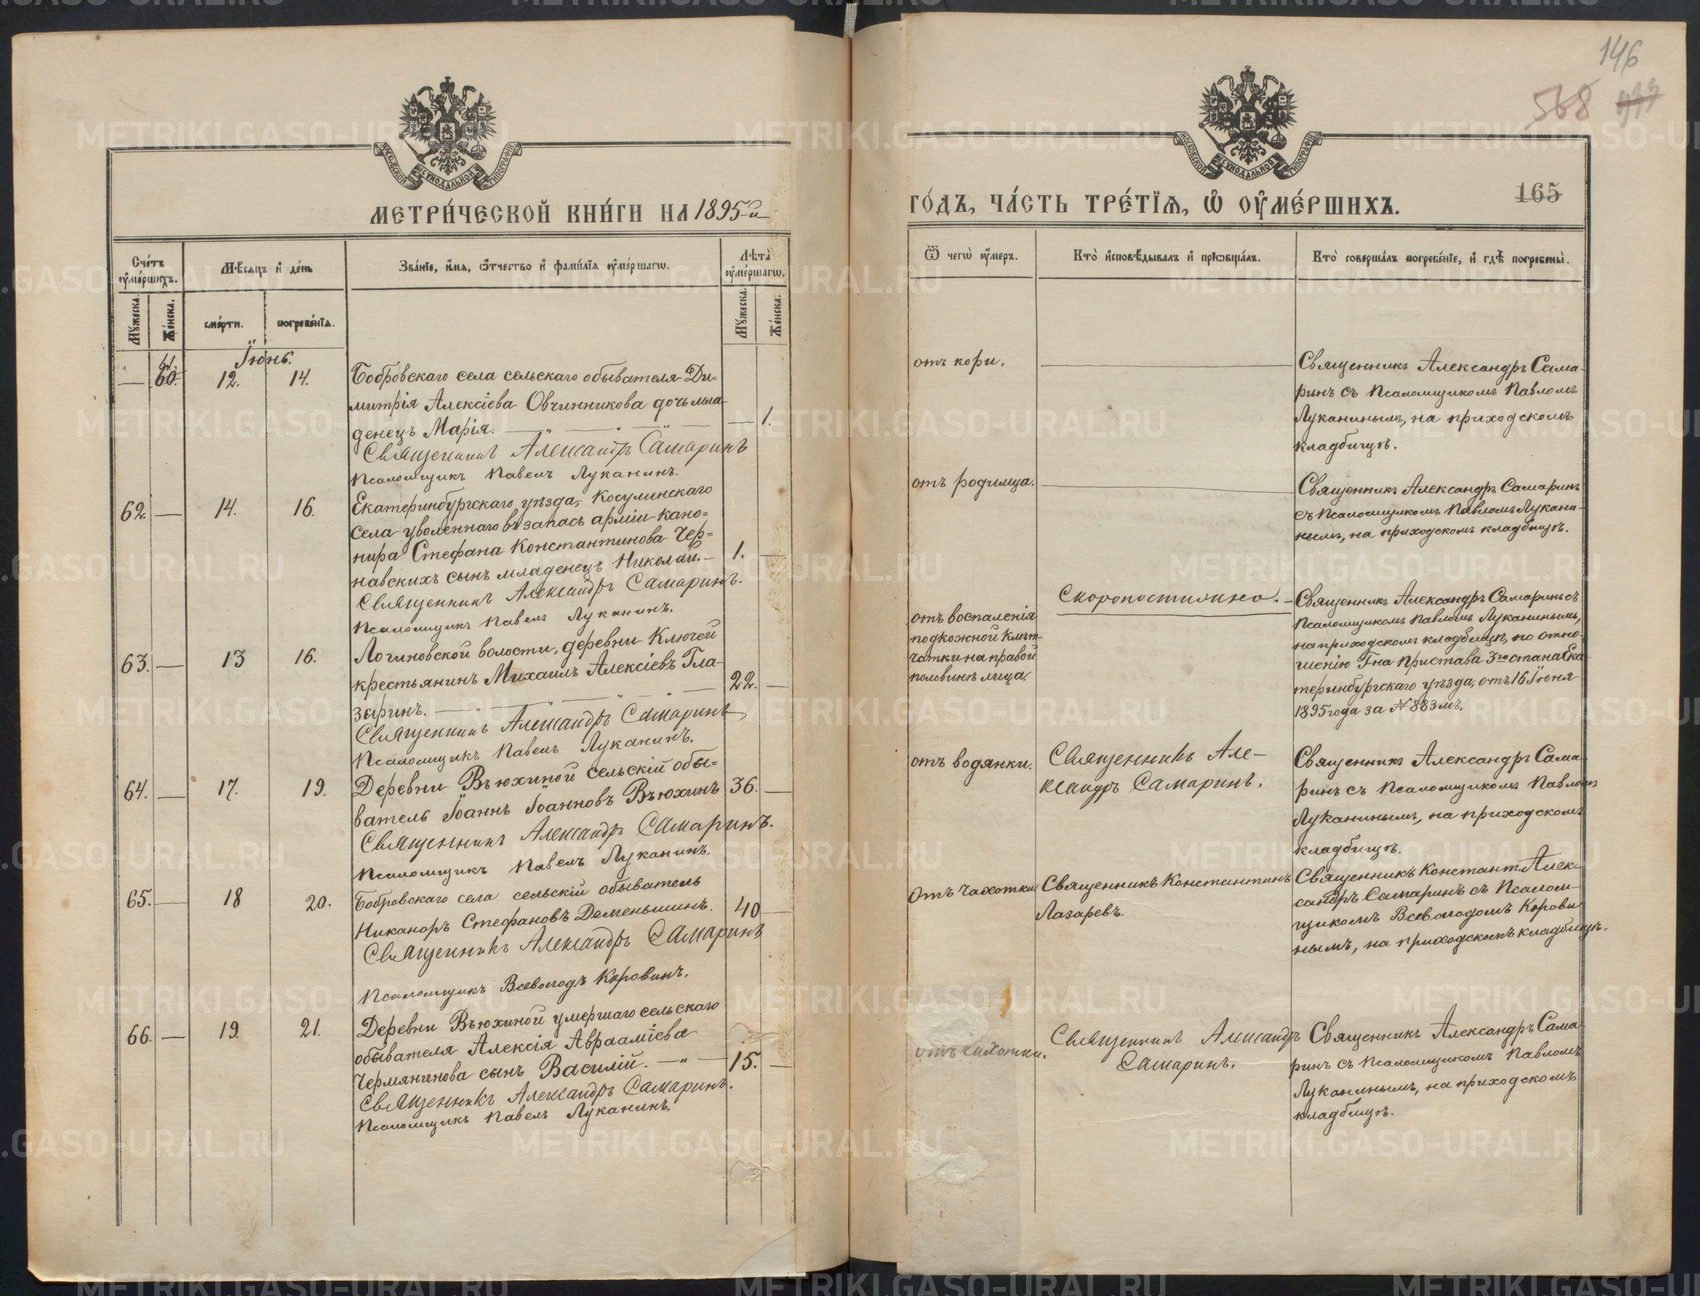 146
568
165
МЕТРИ́ЧЕСКОЙ КНИ́ГИ НА 1895-й
ГО́ДЪ, ЧА́СТЬ ТРЕ́ТЇѦ, Ѡ҆ ОУ҆МЕ́РШИХЪ.
Сче́тъ оу҆ме́ршихъ.
Мꙋ́жеска.
Же́нска.
Мѣ́сѧцъ и҆ де́нь
сме́рти.
погребе́нїѧ.
Зва́нїе, и҆́мѧ, ѻ҆́тчество и҆ фами́лїѧ оу҆ме́ршагѡ.
Лѣ̀та оу҆ме́ршагѡ.
Мꙋ́жеска.
Же́нска.
Ѿ чегѡ̀ оу҆́меръ.
Кто̀ и҆сповѣ́дывалъ и҆ прїѡбща́лъ.
Кто̀ соверша́лъ погребе́нїе, и҆ гдѣ̀ погребены̀.
Іюнь.
— 61. 60. 12. 14.
Бобровскаго села сельскаго обывателя Ди-
митрія Алексіева Овчинникова дочь мла-
денецъ Марія. — 1.
Священникъ Александръ Самаринъ
Псаломщикъ Павелъ Луканинъ.
отъ кори.
Священникъ Александръ Сама-
ринъ съ Псаломщикомъ Павломъ
Луканинымъ, на приходскомъ
кладбищѣ.
62. — 14. 16.
Екатеринбургскаго уѣзда, Косулинскаго
села уволеннаго въ запасъ арміи кано-
нира Стефана Константинова Чер-
навскихъ сынъ младенецъ Николай. — 1. —
Священникъ Александръ Самаринъ.
Псаломщикъ Павелъ Луканинъ.
отъ родимца.
Священникъ Александръ Самаринъ
съ Псаломщикомъ Павломъ Лукани-
нымъ, на приходскомъ кладбищѣ.
63. — 13 16.
Логиновской волости, деревни Ключей
крестьянинъ Михаилъ Алексіевъ Гла-
заринъ. — 22. —
Священникъ Александръ Самаринъ
Псаломщикъ Павелъ Луканинъ.
отъ воспаленія
подкожной клѣт-
чатки на правой
половинѣ лица.
Скоропостижно.
Священникъ Александръ Самаринъ съ
Псаломщикомъ Павломъ Луканинымъ,
на приходскомъ кладбищѣ, по отно-
шенію Г-на Пристава 3го стана Ека-
теринбургскаго уѣзда, отъ 16 Іюня
1895 года за № 883мъ.
64. — 17. 19.
Деревни Вьюхиной сельскій обы-
ватель Іоаннъ Іоанновъ Вьюхинъ 36. —
Священникъ Александръ Самаринъ.
Псаломщикъ Павелъ Луканинъ.
отъ водянки.
Священникъ Але-
ксандръ Самаринъ.
Священникъ Александръ Сама-
ринъ съ Псаломщикомъ Павломъ
Луканинымъ, на приходскомъ
кладбищѣ.
65. — 18 20.
Бобровскаго села сельскій обыватель
Никаноръ Стефановъ Деменьшинъ. 40 —
Священникъ Александръ Самаринъ
Псаломщикъ Всеволодъ Коровинъ.
Отъ чахотки
Священникъ Константинъ
Лазаревъ.
Священникъ Константъ Алек-
сандръ Самаринъ съ Псалом-
щикомъ Всеволодомъ Корови-
нымъ, на приходскомъ кладбищѣ.
66. — 19. 21.
Деревни Вьюхиной умершаго сельскаго
обывателя Алексія Авраамieва
Чермянинова сынъ Василій. — 15. —
Священникъ Александръ Самаринъ.
Псаломщикъ Павелъ Луканинъ.
отъ чахотки.
Священникъ Александръ
Самаринъ.
Священникъ Александръ Сама-
ринъ съ Псаломщикомъ Павломъ
Луканинымъ, на приходскомъ
кладбищѣ.
METRIKI.GASO-URAL.RU